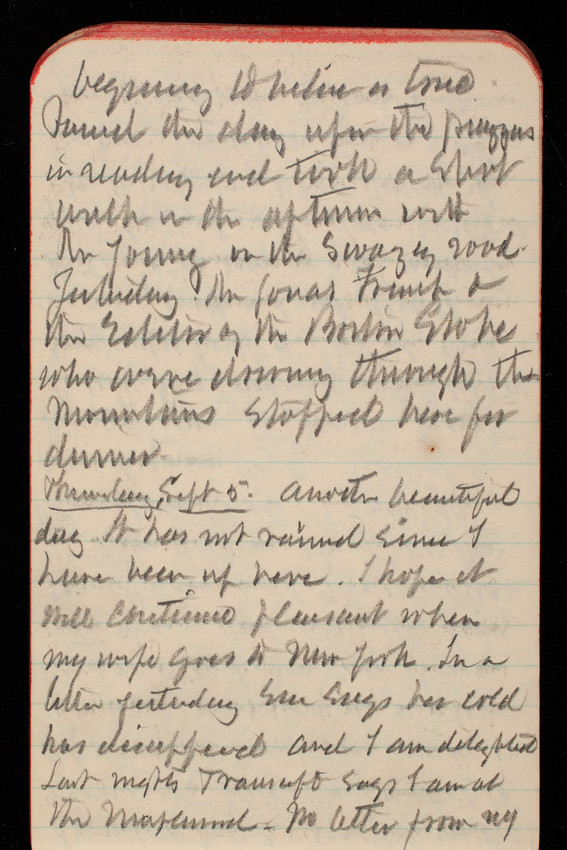 beginning to believe is true
Passed the day upon the piazzas
in reading and took a short
walk in the afternoon with
Mr Young on the Swazey road.
Yesterday Mr Jonas French &
the Editor of the Boston Globe
who were driving through the
Mountains stopped here for
dinner.
Thursday, Sept 5. Another beautiful
day. It has not rained since I
have been up here. I hope it
will continue pleasant when
my wife goes to New York. In a
letter yesterday she says her cold
has disappeared and I am delighted
Last nights Transcript says I am at
the Maplewood. No letter from my